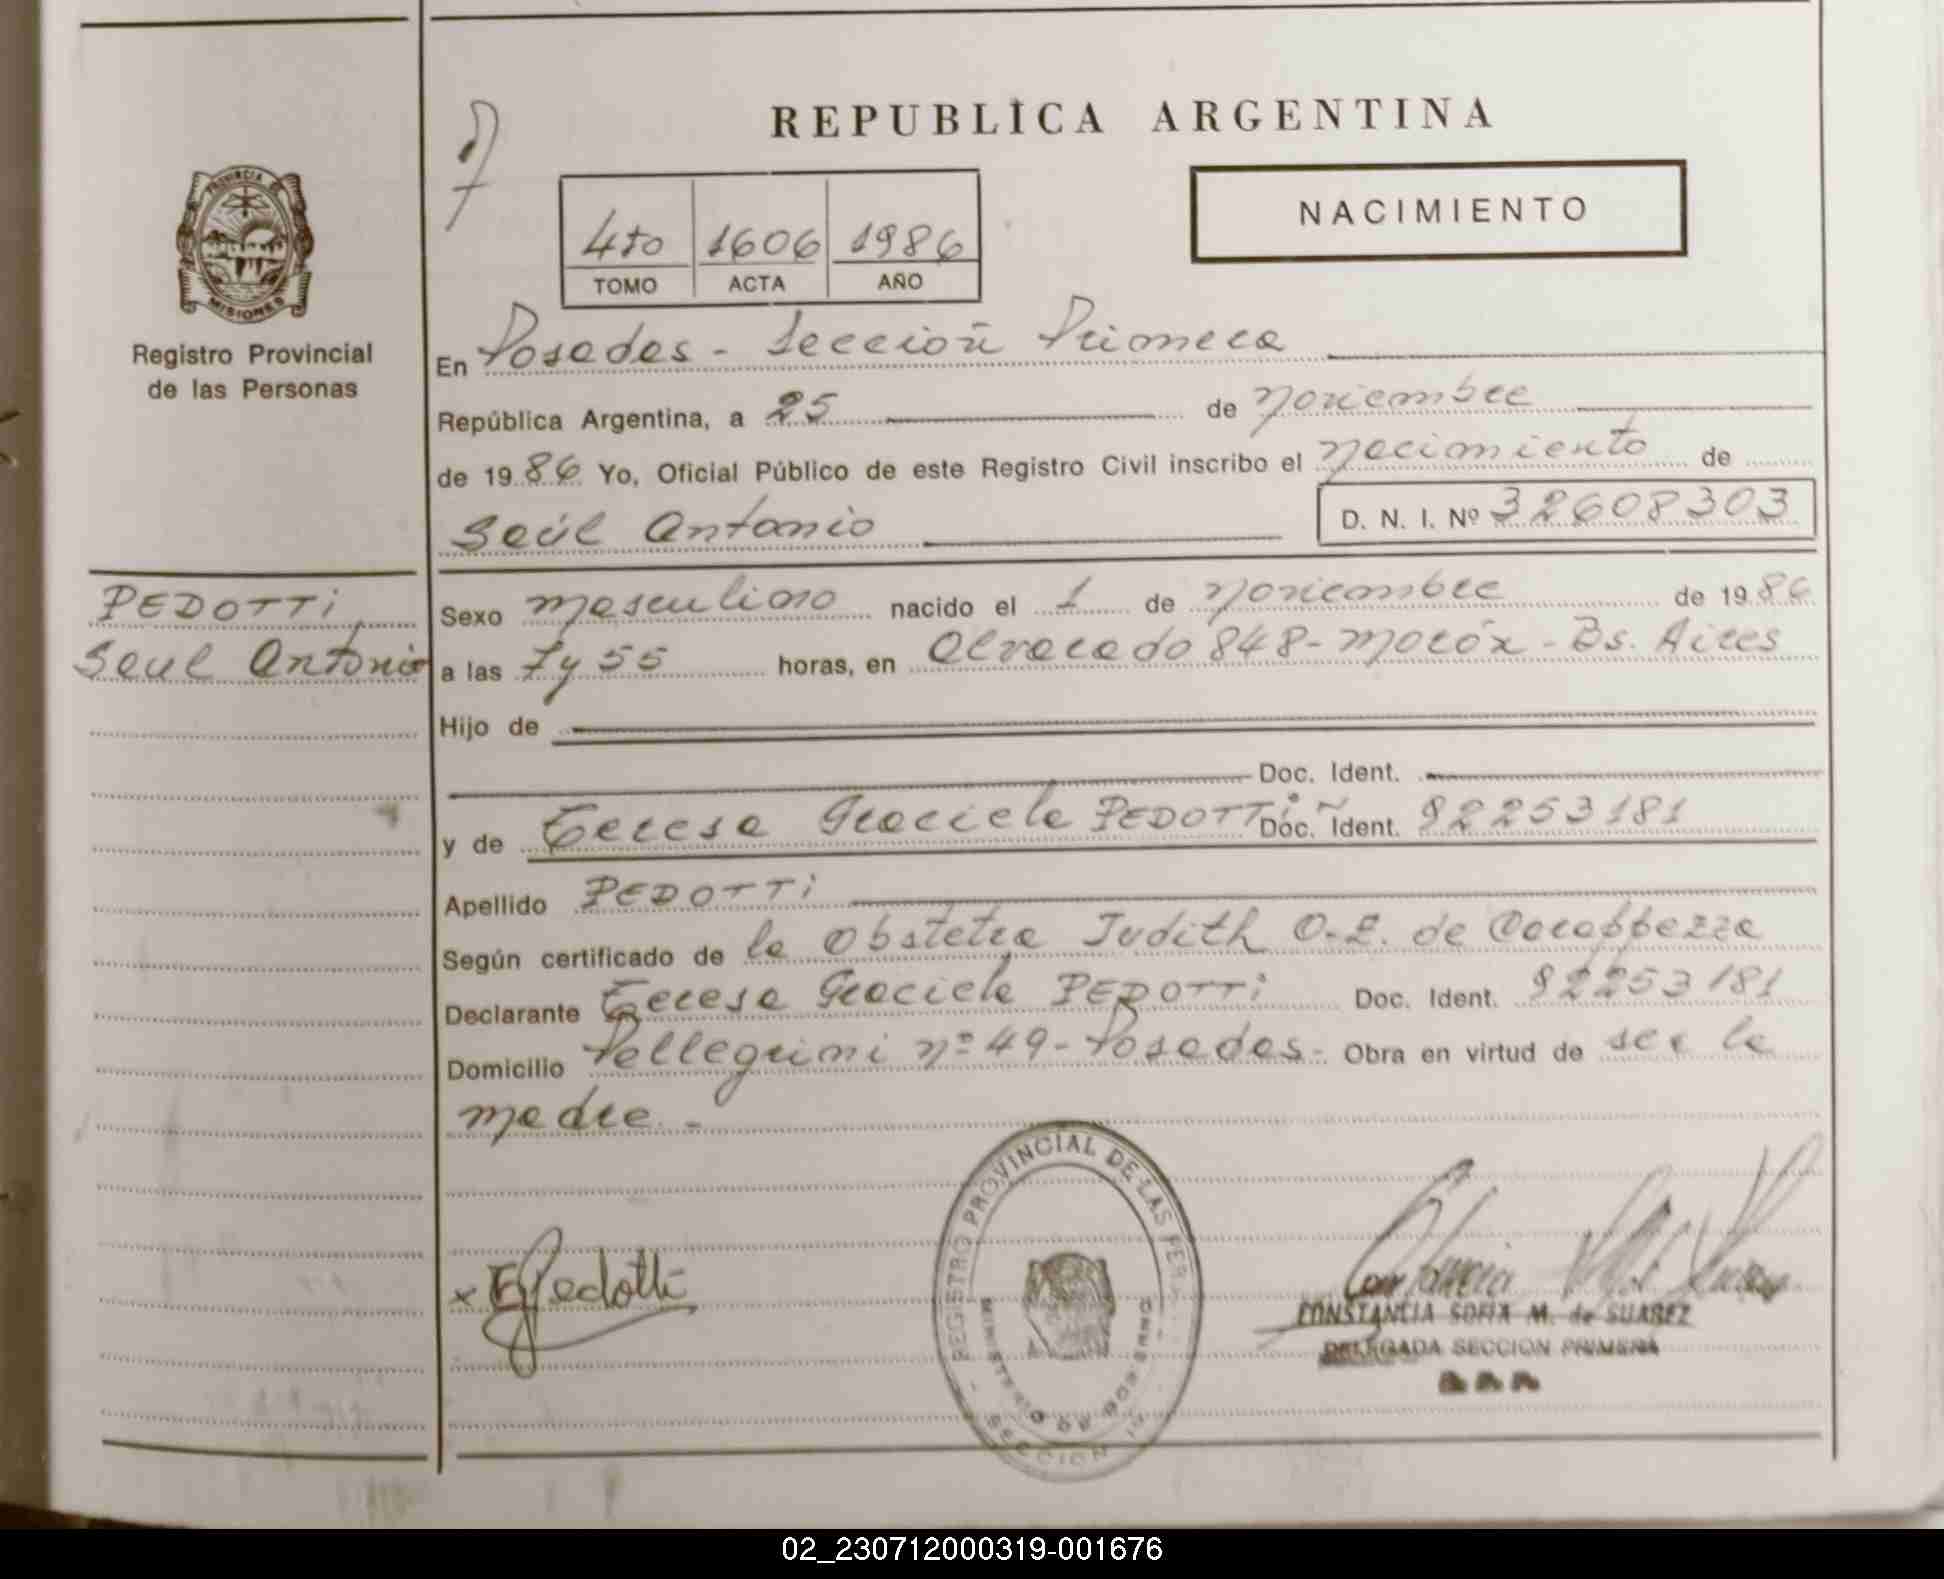 REPUBLICA ARGENTINA
NACIMIENTO
4to 1606 1986
TOMO ACTA AÑO
PROVINCIA DE
MISIONES
Registro Provincial
de las Personas
En Posadas - Sección Primera
República Argentina, a 25 de noviembre
de 1986 Yo, Oficial Público de este Registro Civil inscribo el nacimiento de
Saúl Antonio D. N. I. Nº 32608303
PEDOTTI,
Saul Antonio
Sexo masculino nacido el 1 de noviembre de 1986
a las 7 y 55 horas, en Alvarado 848 - Morón - Bs. Aires
Hijo de
Doc. Ident.
y de Teresa Graciela PEDOTTI Doc. Ident. 92253181
Apellido PEDOTTI
Según certificado de la Obstetra Judith O. de
Declarante Teresa Graciela PEDOTTI Doc. Ident. 92253181
Domicilio Pellegrini nº 49 - Posadas - Obra en virtud de ser la
madre. -
REGISTRO PROVINCIAL DE LAS PER
MINISTERIO DE GOBIERNO
SECCION
x Pedotti
CONSTANCIA SOFIA M. de SUAREZ
DELEGADA SECCION PRIMERA
02_230712000319-001676